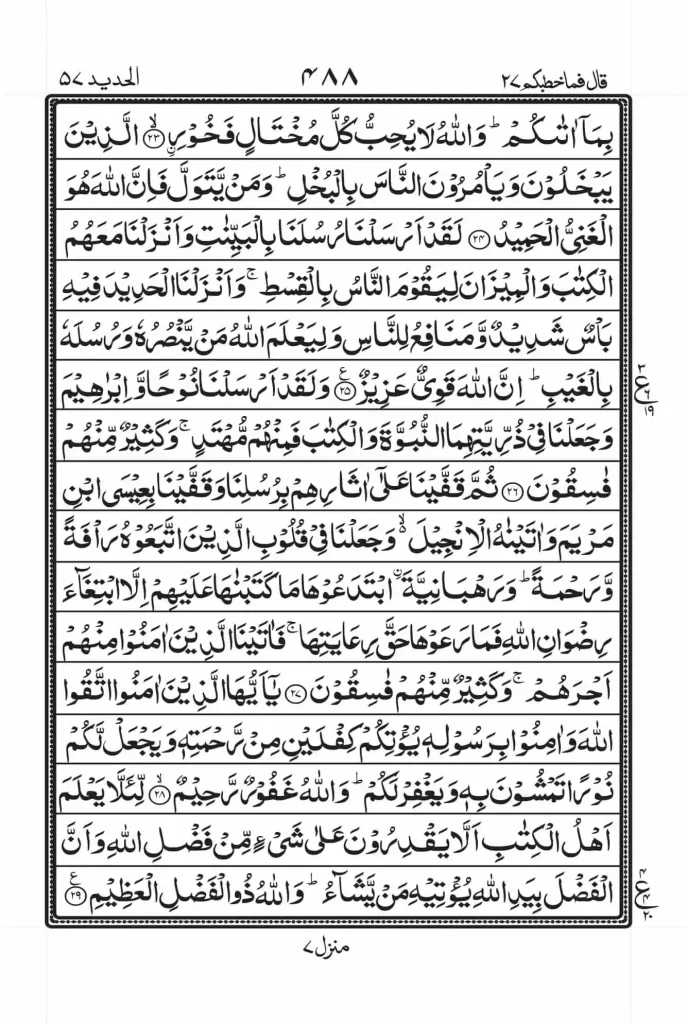 قال فما خطبكم ٢٧ ۴۸۸ الحدید ۵۷
بِمَآ اٰتٰىكُمۡ ؕ وَاللّٰهُ لَا يُحِبُّ كُلَّ مُخۡتَالٍ فَخُوۡرِۙ ۟ۙ‏ ﴿۲۳﴾ اۨلَّذِيۡنَ
يَبۡخَلُوۡنَ وَيَاۡمُرُوۡنَ النَّاسَ بِالۡبُخۡلِ‌ؕ وَمَنۡ يَّتَوَلَّ فَاِنَّ اللّٰهَ هُوَ
الۡغَنِىُّ الۡحَمِيۡدُ‏ ﴿۲۴﴾ لَقَدۡ اَرۡسَلۡنَا رُسُلَنَا بِالۡبَيِّنٰتِ وَاَنۡزَلۡنَا مَعَهُمُ
الۡكِتٰبَ وَالۡمِيۡزَانَ لِيَقُوۡمَ النَّاسُ بِالۡقِسۡطِ‌ۚ وَاَنۡزَلۡنَا الۡحَدِيۡدَ فِيۡهِ
بَاۡسٌ شَدِيۡدٌ وَّمَنَافِعُ لِلنَّاسِ وَلِيَعۡلَمَ اللّٰهُ مَنۡ يَّنۡصُرُهٗ وَرُسُلَهٗ
بِالۡغَيۡبِ‌ ؕ اِنَّ اللّٰهَ قَوِىٌّ عَزِيۡزٌ ﴿۲۵﴾ ع وَلَقَدۡ اَرۡسَلۡنَا نُوۡحًا وَّاِبۡرٰهِيۡمَ ٣ ع ٦ ١٩
وَجَعَلۡنَا فِىۡ ذُرِّيَّتِهِمَا النُّبُوَّةَ وَالۡكِتٰبَ‌ فَمِنۡهُمۡ مُّهۡتَدٍ‌ۚ وَكَثِيۡرٌ مِّنۡهُمۡ
فٰسِقُوۡنَ‏ ﴿۲۶﴾ ثُمَّ قَفَّيۡنَا عَلٰٓى اٰثَارِهِمۡ بِرُسُلِنَا وَقَفَّيۡنَا بِعِيۡسَى ابۡنِ
مَرۡيَمَ وَاٰتَيۡنٰهُ الۡاِنۡجِيۡلَ ۙ وَجَعَلۡنَا فِىۡ قُلُوۡبِ الَّذِيۡنَ اتَّبَعُوۡهُ رَاۡفَةً
وَّرَحۡمَةً ؕ وَرَهۡبَانِيَّةَ اۨبۡتَدَعُوۡهَا مَا كَتَبۡنٰهَا عَلَيۡهِمۡ اِلَّا ابۡتِغَآءَ
رِضۡوَانِ اللّٰهِ فَمَا رَعَوۡهَا حَقَّ رِعَايَتِهَا‌ ۚ فَاٰتَيۡنَا الَّذِيۡنَ اٰمَنُوۡا مِنۡهُمۡ
اَجۡرَهُمۡ‌ۚ وَكَثِيۡرٌ مِّنۡهُمۡ فٰسِقُوۡنَ‏ ﴿۲۷﴾ يٰۤاَيُّهَا الَّذِيۡنَ اٰمَنُوا اتَّقُوا
اللّٰهَ وَاٰمِنُوۡا بِرَسُوۡلِهٖ يُؤۡتِكُمۡ كِفۡلَيۡنِ مِنۡ رَّحۡمَتِهٖ وَيَجۡعَلْ لَّـكُمۡ
نُوۡرًا تَمۡشُوۡنَ بِهٖ وَيَغۡفِرۡ لَـكُمۡ‌ؕ وَاللّٰهُ غَفُوۡرٌ رَّحِيۡمٌۙ ﴿۲۸﴾ لِّئَلَّا يَعۡلَمَ
اَهۡلُ الۡكِتٰبِ اَلَّا يَقۡدِرُوۡنَ عَلٰى شَىۡءٍ مِّنۡ فَضۡلِ اللّٰهِ‌ وَاَنَّ
الۡفَضۡلَ بِيَدِ اللّٰهِ يُؤۡتِيۡهِ مَنۡ يَّشَآءُ‌ ؕ وَاللّٰهُ ذُو الۡفَضۡلِ الۡعَظِيۡمِ ﴿۲۹﴾ ع ٤ ع ٤ ٢٠
منزل ٧